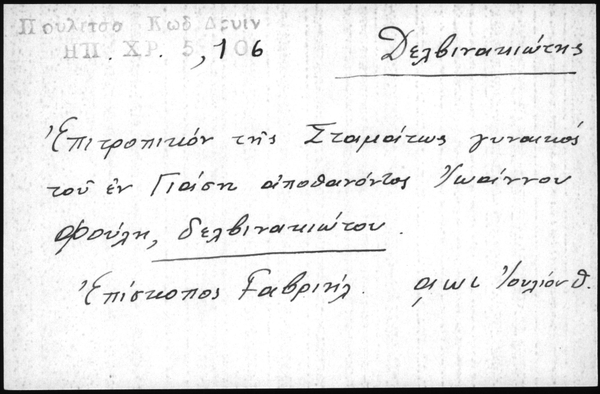 Πουλίτσα Κωδ Δρυιν
ΗΠ. ΧΡ. 5, 106
Δελβινακιώτης
Ἐπιτροπικόν τῆς Σταμάτως γυναικός
τοῦ ἐν Γιάση αποθανόντος Ἰωάννου
Φούλη, δελβινακιώτου.
Ἐπίσκοπος Γαβριήλ. αωι Ἰουλίου θ.